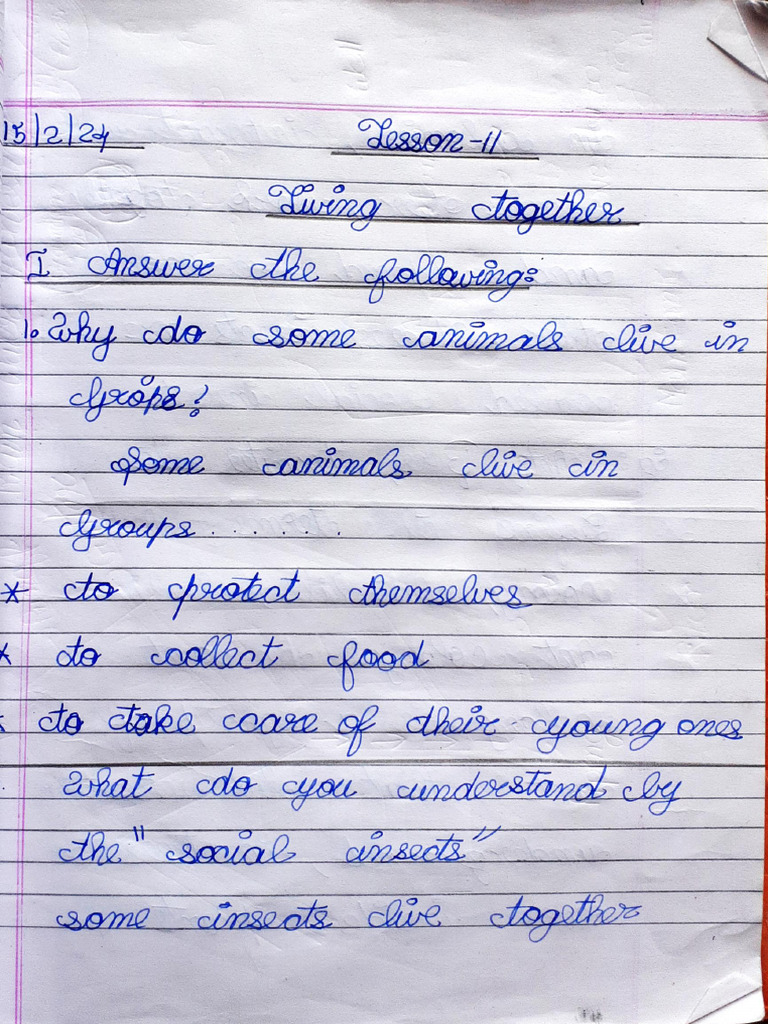 15/2/24 Lesson-11
Living together
I Answer the following:
1. Why do some animals live in
Grops?
Some animals live in
Groups........
* to protect themselves
* to collect food
* to take care of their young ones
What do you understand by
the "social insects"
some insects live together